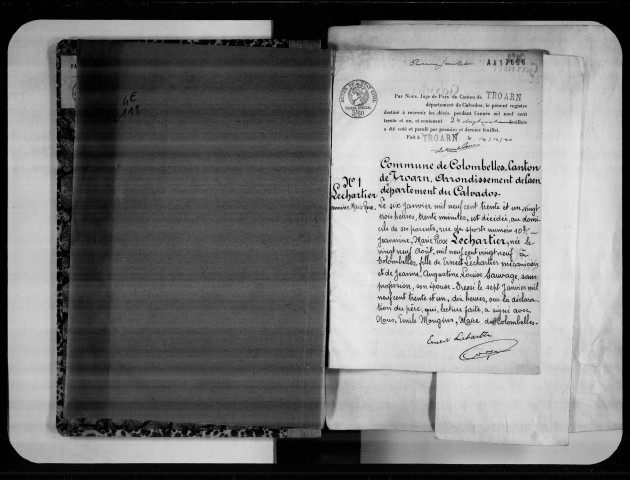 4E
113
Premier feuillet
AA17606
ACTES DE L'ETAT CIVIL
Par Nous, Juge de Paix du Canton de TROARN
département du Calvados, le présent registre
destiné à recevoir les décès, pendant l'année mil neuf cent
trente et un, et contenant 24 feuillets
a été coté et paraphé par premier et dernier feuillet.
Fait à TROARN le
Commune de Colombelles, Canton
de Troarn, Arrondissement de Caen
département du Calvados
N° 1
Lechartier
Jeannine, Marie Rose.
Le six Janvier mil neuf cent trente et un, vingt
trois heures, trente minutes, est décédée, au domi-
cile de ses parents, rue des sports numéro 108 —
Jeannine, Marie Rose Lechartier, née le
vingt neuf Août, mil neuf cent vingt neuf à
Colombelles, fille de Ernest Lechartier mécanicien
et de Jeanne, Augustine, Louise Sauvage, sans
profession, son épouse. Dressé le sept Janvier mil
neuf cent trente et un, dix heures, sur la déclara-
tion du père, qui, lecture faite, a signé avec
Nous, Emile Mougins, Maire de Colombelles.
Ernest Lechartier